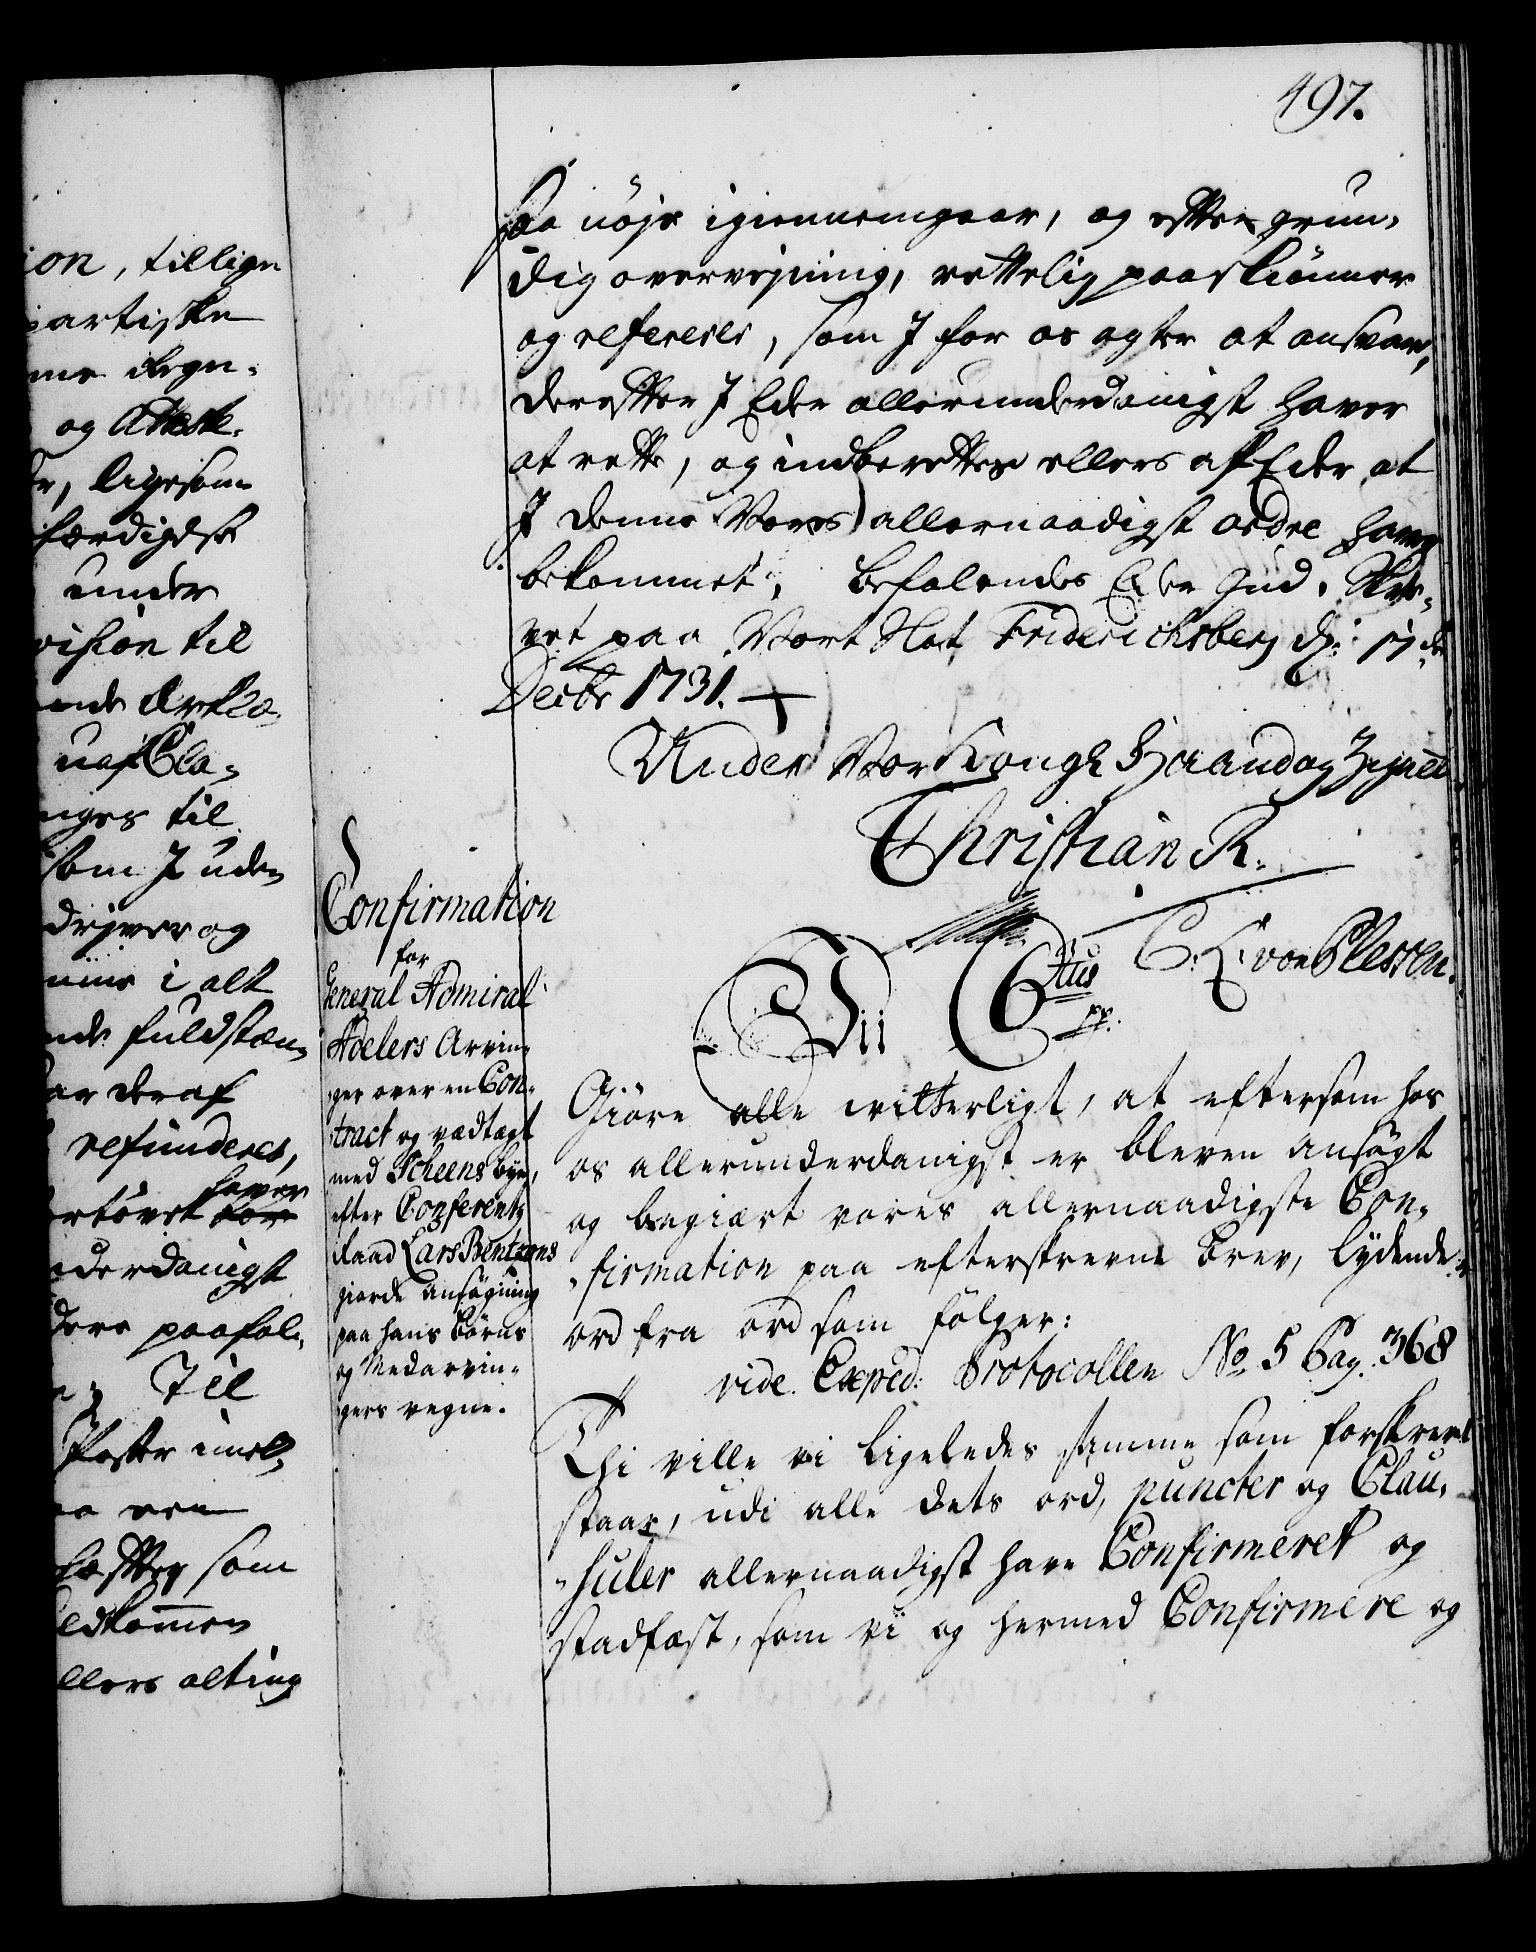 497.
ion, tillige
partiske
og Atteste-
der, ligesom
færdigelse
under
vision til
ende Erklæ-
uaf Cla-
nges til
som I uden
drives og
i alt
ende fuldstæn-
ar deraf
refunderes,
haver
underdanigst
dere paafal-
Til
Poster imel-
hæfter som
edkommen
ellers alting
saa nöje igiennemgaar, og efter grun-
dig overvejning, rettelig paaskiönner
og refererer, som I for os agter at ansvare,
derefter I Eder allerunderdanigst haver
at rette, og indberettes ellers af Eder, at
I denne Vores allernaadigst ordre haver
bekommet, befalendes Eder Gud. Skre-
vet paa Vort Slot Friderichsberg d: 17de
Decbr 1731.
Under Vor Kongl Haand og Zignet
Christian R.
C. A. von Plessen.
Confirmation
for
General Admiral
Adelers Arvin-
ger over en Con-
tract og vedtægt
med Scheens bye,
efter Conferentz
Raad Lars Bentzons
giorde ansögning
paa hans börns
og Medarvin-
gers vegne.
Vii C6tus
pp:
Giöre alle witterligt, at eftersom hos
os allerunderdanigst er bleven ansögt
og begiært vores allernaadigste Con-
firmation paa efterskrevne brev, lydende
ord fra ord som fölger:
vide Exped: Protocollen No 5 Pag. 368
Thi ville vi ligeledes samme som forskrevet
staar, udi alle dets ord, puncter og Clau-
suler allernaadigst have Confirmeret og
stadfæst, som vi og hermed Confirmere og